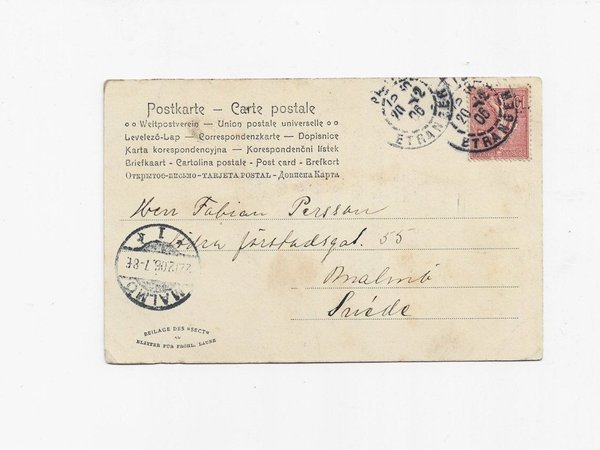 Postkarte — Carte postale
Weltpostverein — Union postale universelle
Levelező-Lap — Correspondenzkarte — Dopisnice
Karta korespondencyjna — Korespondenční lístek
Briefkaart - Cartolina postale - Post card - Brefkort
Открытое-письмо-TARJETA POSTAL-Довисна Карта
ETRANGER
20 12 06
ETRANGER
Herr Fabian Persson
förstadsgat. 55
Malmö
Suéde
MALMÖ
BEILAGE DES »SECT«
BLÄTTER FÜR FRÖHL. LAUNE